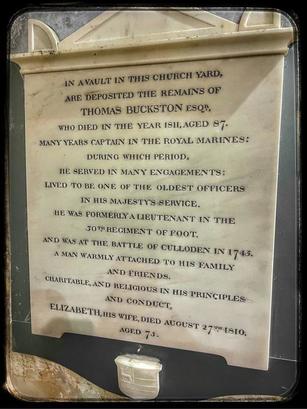 IN A VAULT IN THIS CHURCH YARD,
ARE DEPOSITED THE REMAINS OF
THOMAS BUCKSTON ESQR,
WHO DIED IN THE YEAR 1811, AGED 87.
MANY YEARS CAPTAIN IN THE ROYAL MARINES:
DURING WHICH PERIOD,
HE SERVED IN MANY ENGAGEMENTS:
LIVED TO BE ONE OF THE OLDEST OFFICERS
IN HIS MAJESTY'S SERVICE.
HE WAS FORMERLY A LIEUTENANT IN THE
30TH REGIMENT OF FOOT,
AND WAS AT THE BATTLE OF CULLODEN IN 1745.
A MAN WARMLY ATTACHED TO HIS FAMILY
AND FRIENDS.
CHARITABLE, AND RELIGIOUS IN HIS PRINCIPLES
AND CONDUCT,
ELIZABETH, HIS WIFE, DIED AUGUST 27TH 1810.
AGED 75.